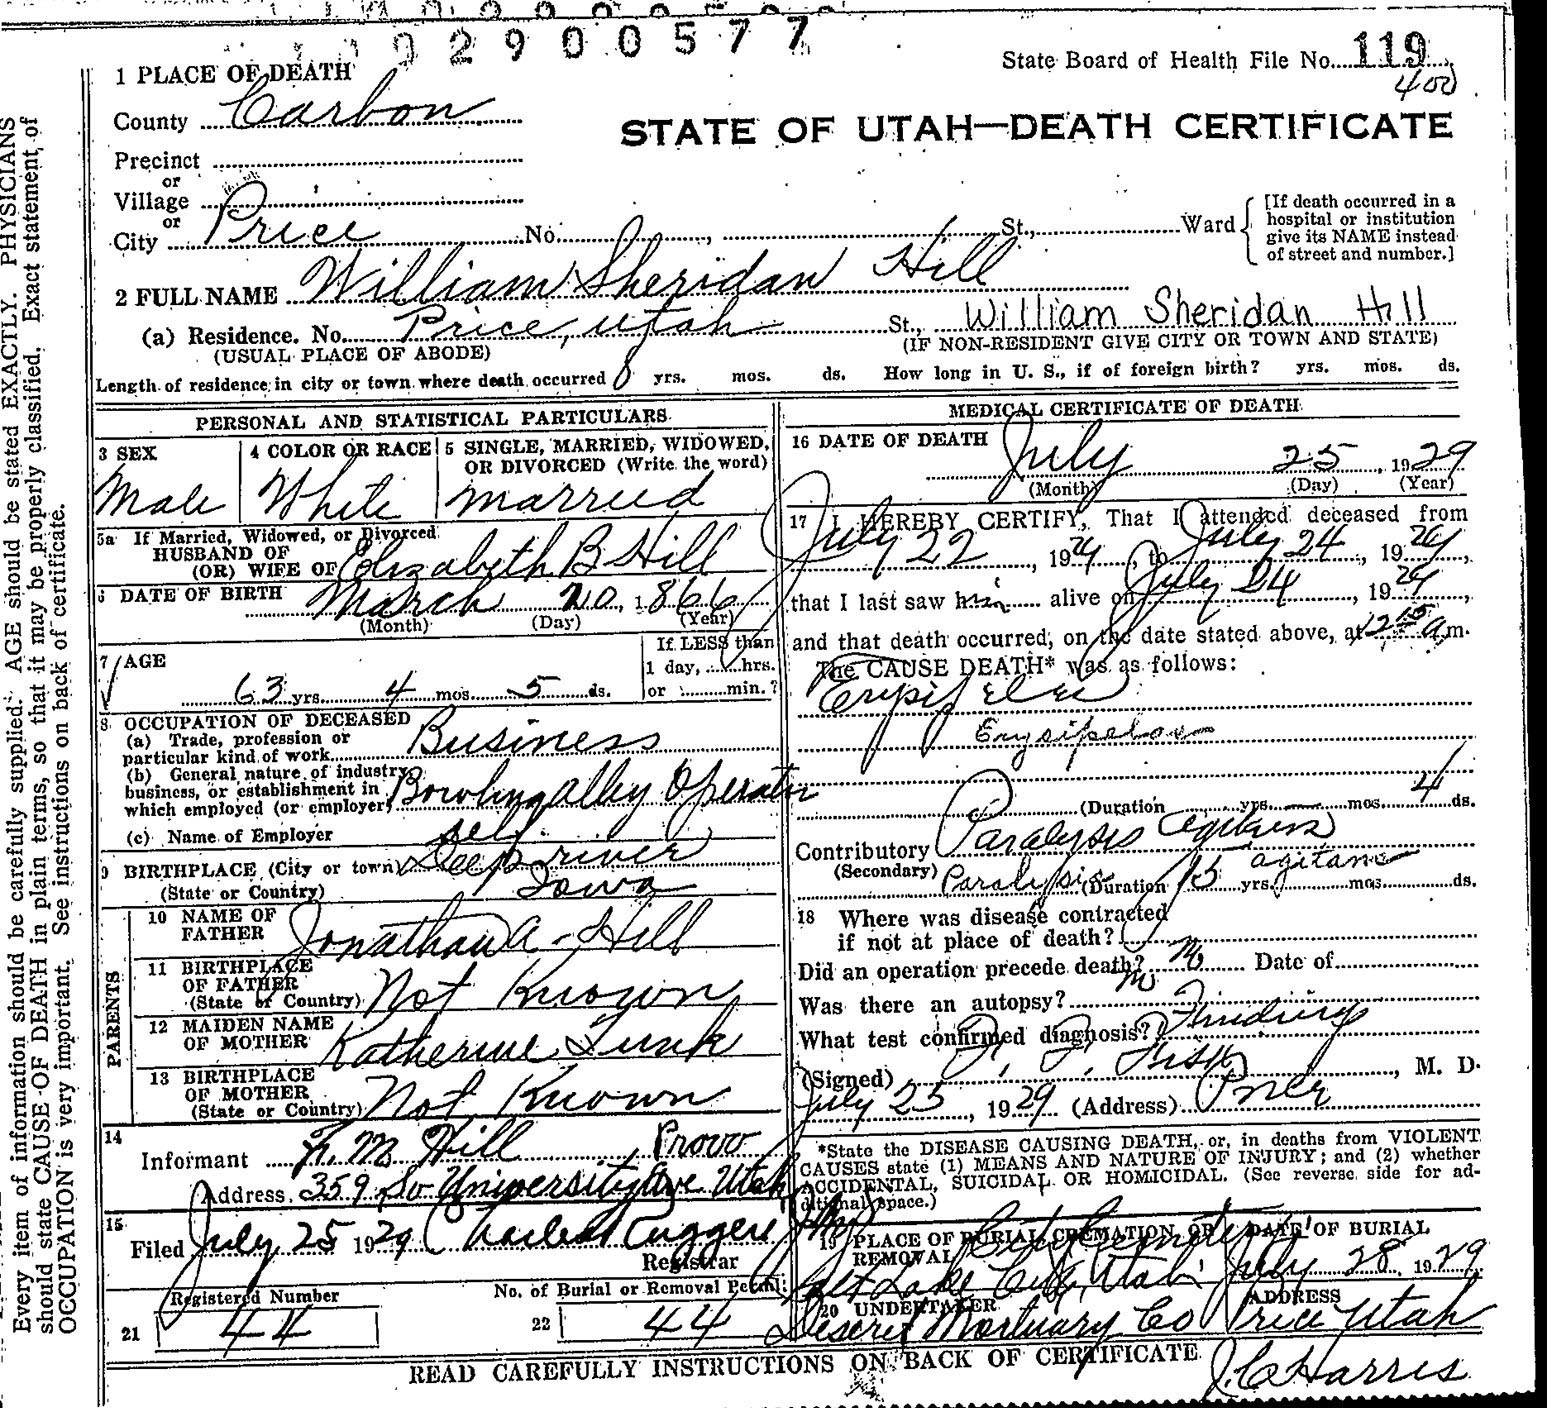 92900577
State Board of Health File No. 119
400
1 PLACE OF DEATH
County Carbon
STATE OF UTAH—DEATH CERTIFICATE
Precinct
or
Village
or
City Price No. , St., Ward
[If death occurred in a hospital or institution give its NAME instead of street and number.]
2 FULL NAME William Sheridan Hill
(a) Residence. No. Price, Utah St., William Sheridan Hill
(USUAL PLACE OF ABODE) (IF NON-RESIDENT GIVE CITY OR TOWN AND STATE)
Length of residence in city or town where death occurred 8 yrs. mos. ds. How long in U. S., if of foreign birth? yrs. mos. ds.
PERSONAL AND STATISTICAL PARTICULARS
3 SEX 4 COLOR OR RACE 5 SINGLE, MARRIED, WIDOWED, OR DIVORCED (Write the word)
Male White Married
5a If Married, Widowed, or Divorced
HUSBAND OF
(OR) WIFE OF Elizabeth B Hill
6 DATE OF BIRTH March 20, 1866
(Month) (Day) (Year)
7 AGE
63 yrs. 4 mos. 5 ds.
If LESS than
1 day, hrs.
or min.?
8 OCCUPATION OF DECEASED
(a) Trade, profession or
particular kind of work Business
(b) General nature of industry,
business, or establishment in
which employed (or employer) Bowling alley Operator
(c) Name of Employer self
9 BIRTHPLACE (City or town) Deep river
(State or Country) Iowa
PARENTS
10 NAME OF
FATHER Jonathan A. Hill
11 BIRTHPLACE
OF FATHER
(State or Country) Not Known
12 MAIDEN NAME
OF MOTHER Katherine Lunk
13 BIRTHPLACE
OF MOTHER
(State or Country) Not Known
14
Informant M Hill, Provo
Address 359 So University Ave Utah
15
Filed July 25 1929
Registrar
Registered Number
21 44
No. of Burial or Removal Permit
22 44
MEDICAL CERTIFICATE OF DEATH
16 DATE OF DEATH July 25, 1929
(Month) (Day) (Year)
17 I HEREBY CERTIFY, That I attended deceased from
July 22, 1929, to July 24, 1929,
that I last saw him alive on July 24, 1929,
and that death occurred, on the date stated above, at 12 15 a.m.
The CAUSE DEATH* was as follows:
Erysipelas
Erysipelas
(Duration yrs. mos. 4 ds.
Contributory Paralysis agitans
(Secondary) Paralysis agitans
(Duration 15 yrs. mos. ds.
18 Where was disease contracted
if not at place of death?
Did an operation precede death? No Date of
Was there an autopsy? No
What test confirmed diagnosis? Findings
(Signed) , M. D.
July 25, 1929 (Address) Price
*State the DISEASE CAUSING DEATH, or, in deaths from VIOLENT
CAUSES state (1) MEANS AND NATURE OF INJURY; and (2) whether
ACCIDENTAL, SUICIDAL OR HOMICIDAL. (See reverse side for ad-
ditional space.)
19 PLACE OF BURIAL, CREMATION OR REMOVAL DATE OF BURIAL
City Cemetery
Salt Lake City, Utah July 28, 1929
20 UNDERTAKER ADDRESS
Deseret Mortuary Co Price Utah
READ CAREFULLY INSTRUCTIONS ON BACK OF CERTIFICATE
J. C. Harris
Every item of information should be carefully supplied. AGE should be stated EXACTLY. PHYSICIANS
should state CAUSE OF DEATH in plain terms, so that it may be properly classified. Exact statement of
OCCUPATION is very important. See instructions on back of certificate.